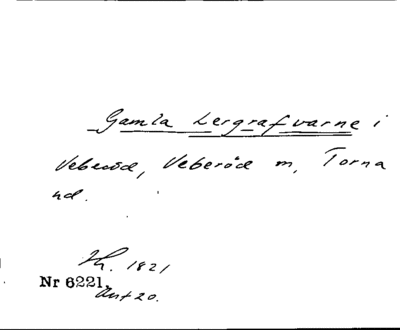 Gamla Lergrafvarne i
Veberöd, Veberöd m, Torna
hd.
Kh. 1821
Nr 6221.
Ant 20.